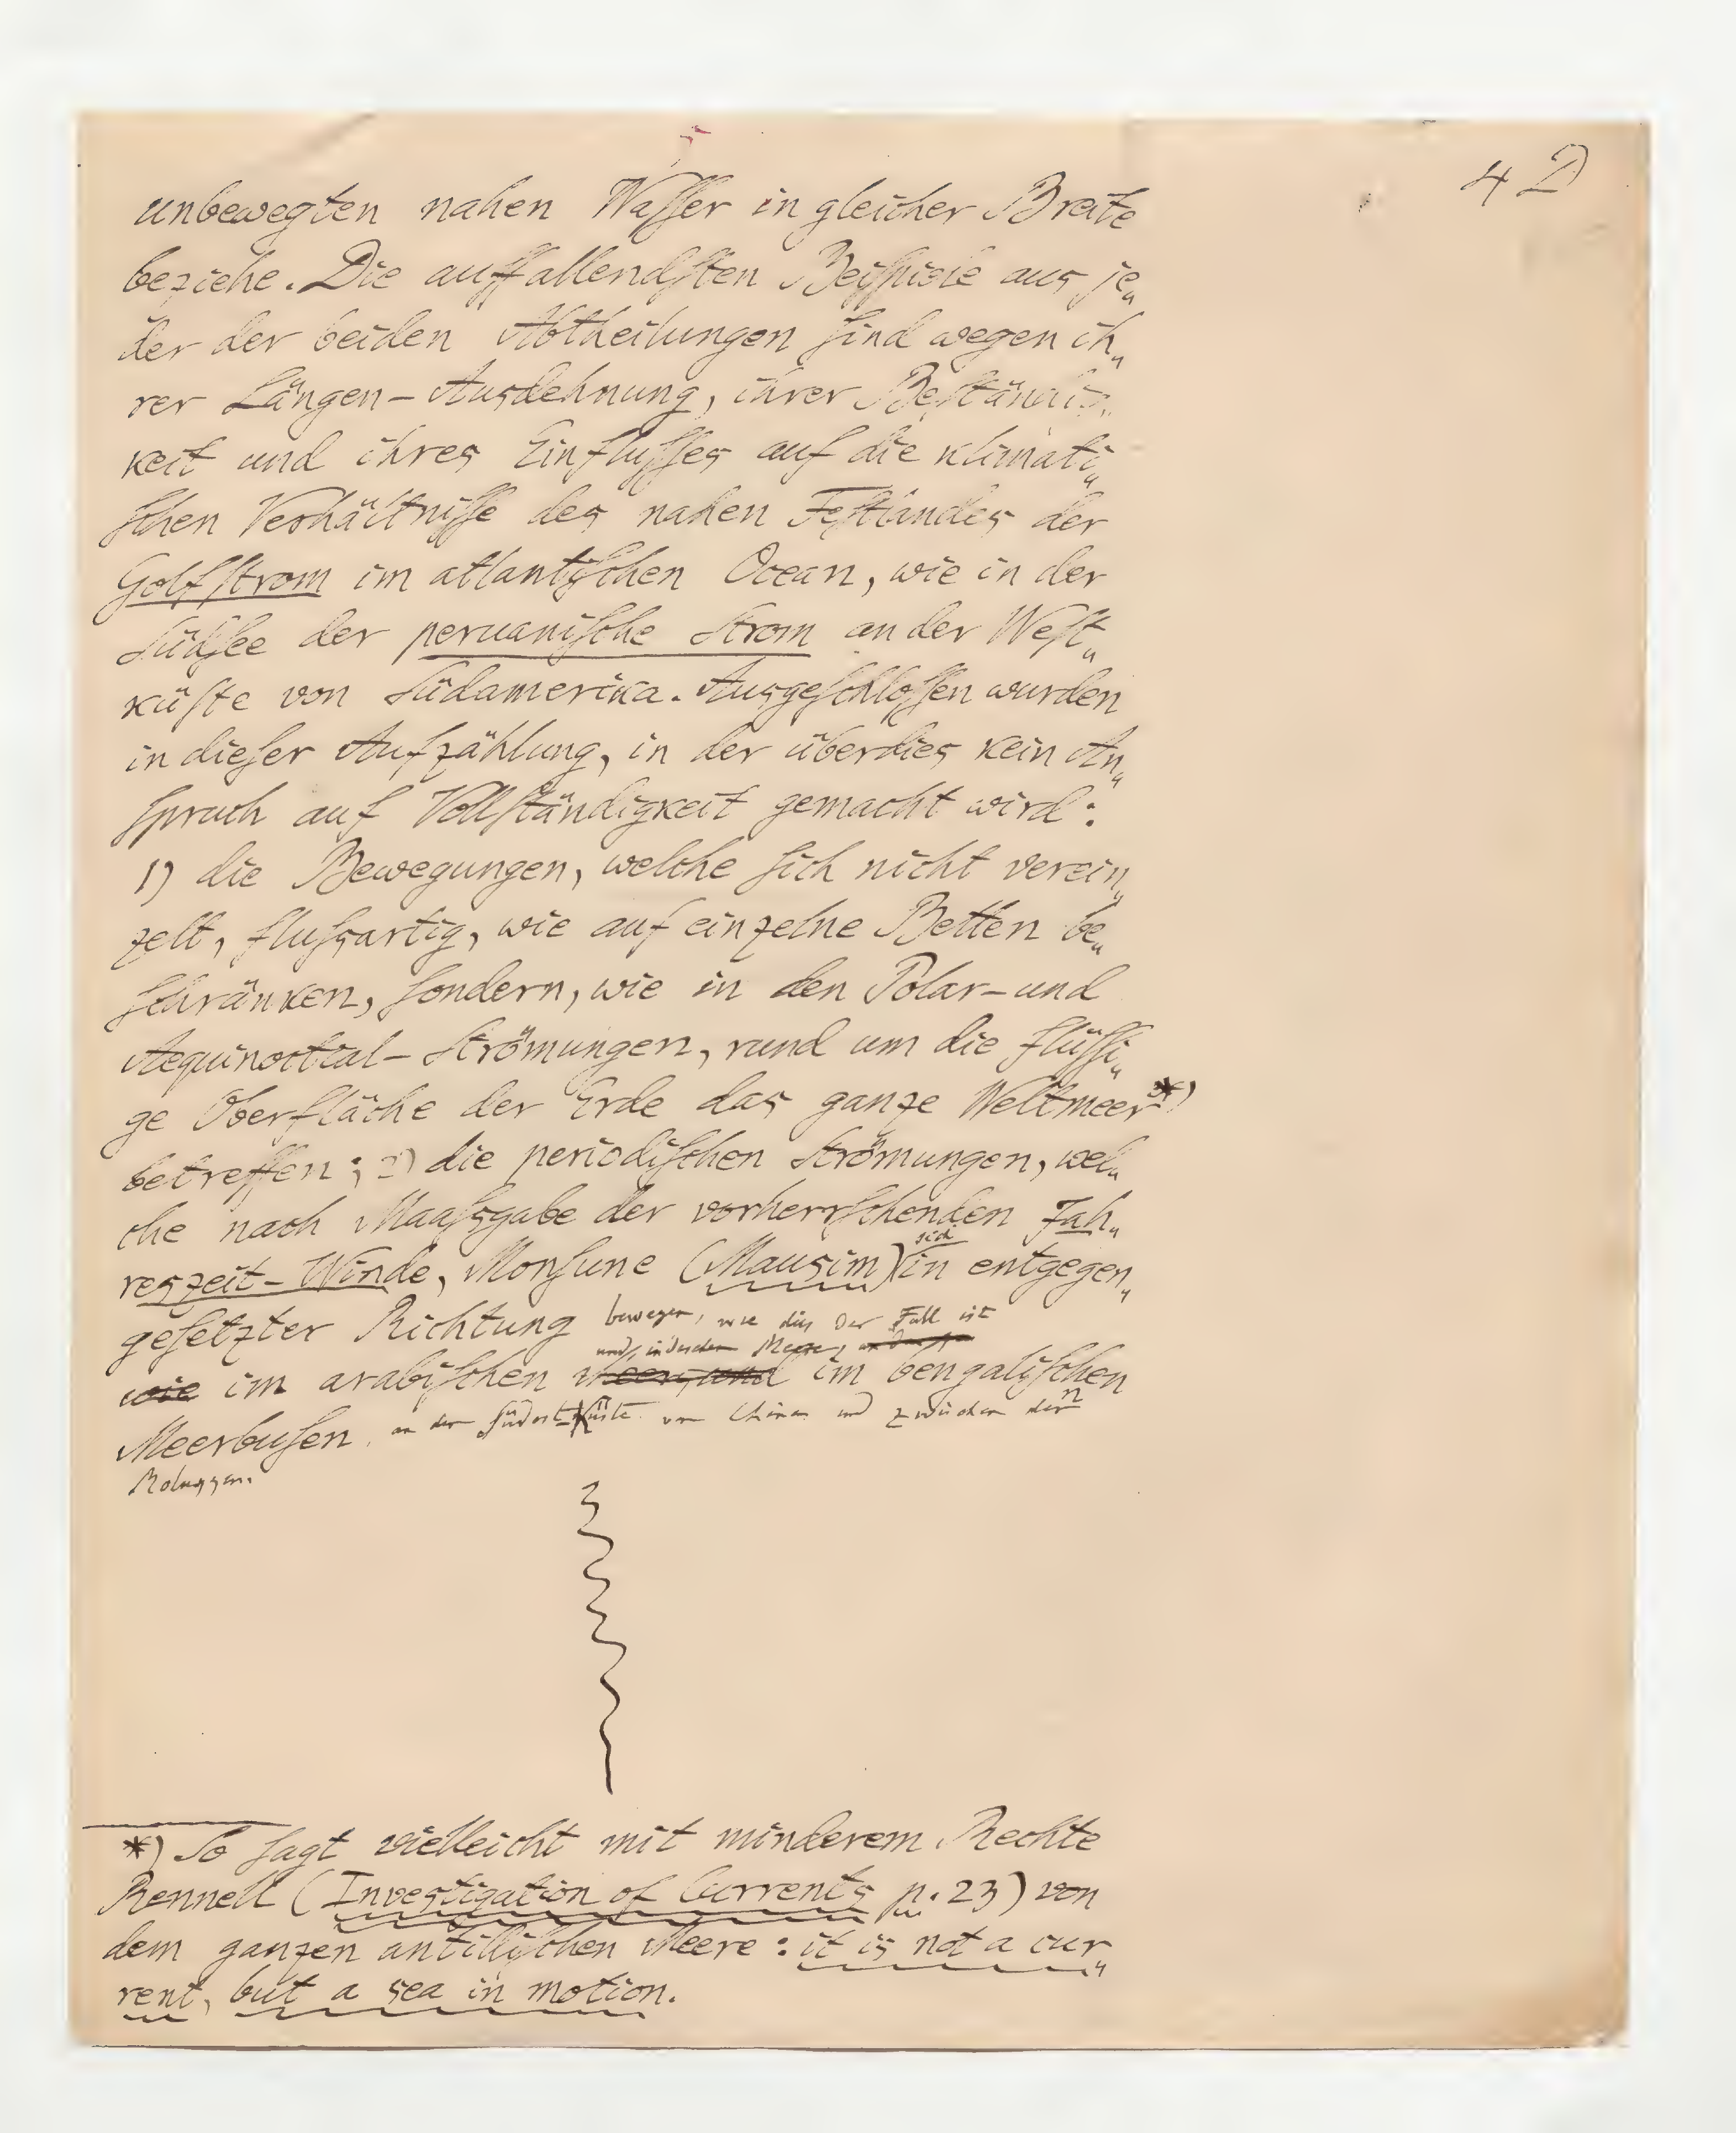 4 D
unbewegten nahen Waſſer in gleicher Breite
beziehe. Die auffallendſten Beiſpiele aus je„
der der beiden Abtheilungen ſind wegen ih„
rer Längen-Ausdehnung, ihrer Beſtändig„
keit und ihres Einfluſſes auf die klimati„
ſchen Verhältniſſe des nahen Feſtlandes der
Golfſtrom im atlantiſchen Ocean, wie in der
Südſee der peruaniſche Strom an der Weſt„
küſte von Südamerika. Ausgeſchloſſen wurden
in dieſer Aufzählung, in der überdies kein An„
ſpruch auf Vollſtändigkeit gemacht wird:
1) die Bewegungen, welche ſich nicht verein„
zelt, fluſsartig, wie auf einzelne Betten be„
ſchränken, ſondern, wie in den Polar- und
Aequinoctial-Strömungen, rund um die flüſſi„
ge Oberfläche der Erde das ganze Weltmeer *)
betreffen; 2) die periodiſchen Strömungen, wel„
che nach Maaſsgabe der vorherrſchenden Jah„
reszeit-Winde, Monſune (Mausim) sich in entgegen„
geſetzter Richtung bewegen, wie dies der Fall ist
wie im arabiſchen Meer, und und indischen Meere, im bengaliſchen
Meerbuſen, an der Südost-Küſte von China und zwischen den
Moluggen.
*) So ſagt vielleicht mit minderem Rechte
Rennell (Investigation of Currents p. 23) von
dem ganzen antilliſchen Meere: it is not a cur„
rent, but a sea in motion.